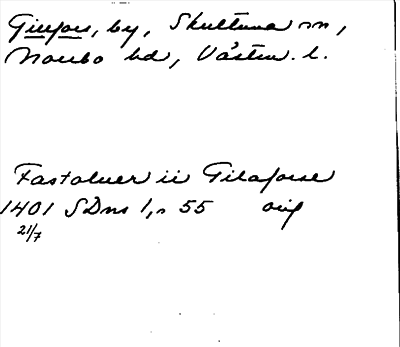 Gilfors, by, Skultuna sn,
Norrbo hd, Västm. l.
Fastoluer ii Gilaforse
1401 SDns 1, n 55 orig
21/7